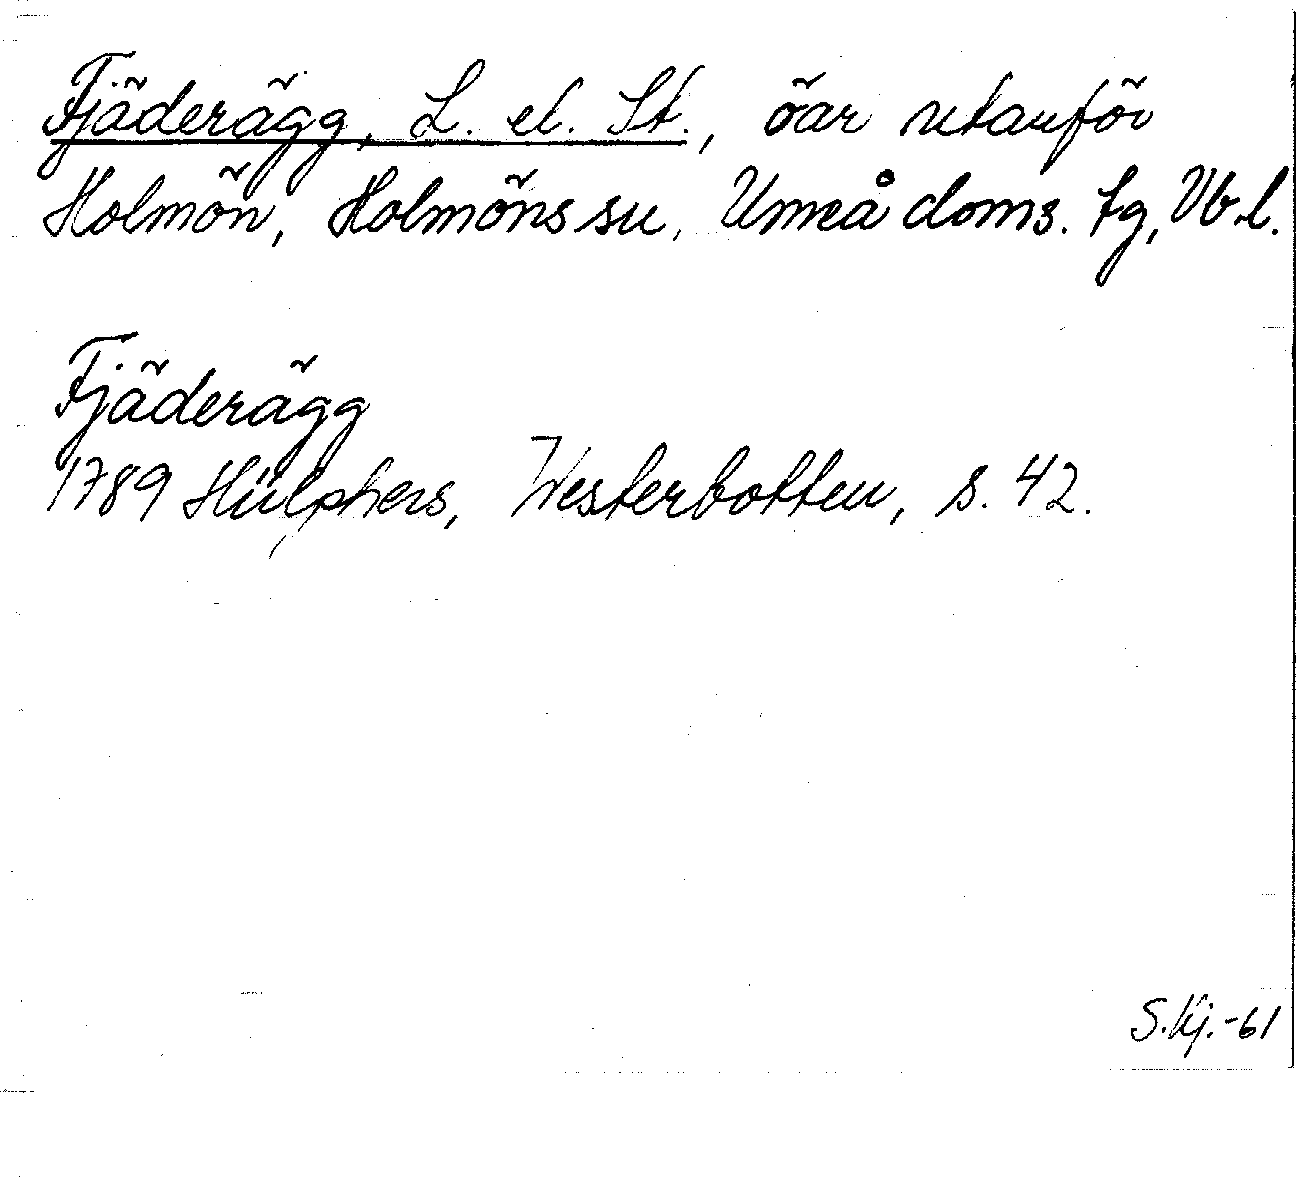 Fjäderägg, L. el. St., öar utanför
Holmön, Holmöns sn, Umeå doms. tg, Vb. l.
Fjäderägg
1789 Hülphers, Westerbotten, s. 42.
S.Kj.-61